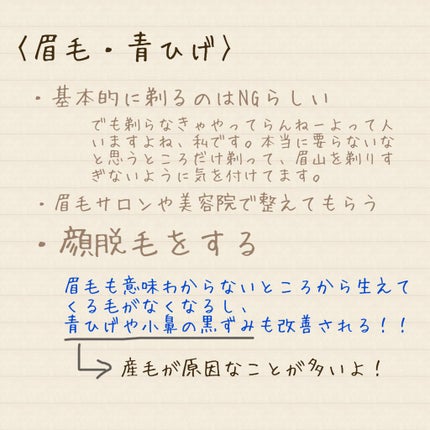 〈眉毛・青ひげ〉
・基本的に剃るのはNGらしい
でも剃らなきゃやってらんねーよって人
いますよね、私です。本当に要らないな
と思うところだけ剃って、眉山を剃りす
ぎないように気を付けてます。
・眉毛サロンや美容院で整えてもらう
・顔脱毛をする
眉毛も意味わからないところから生えて
くる毛がなくなるし、
青ひげや小鼻の黒ずみも改善される！！
産毛が原因なことが多いよ！